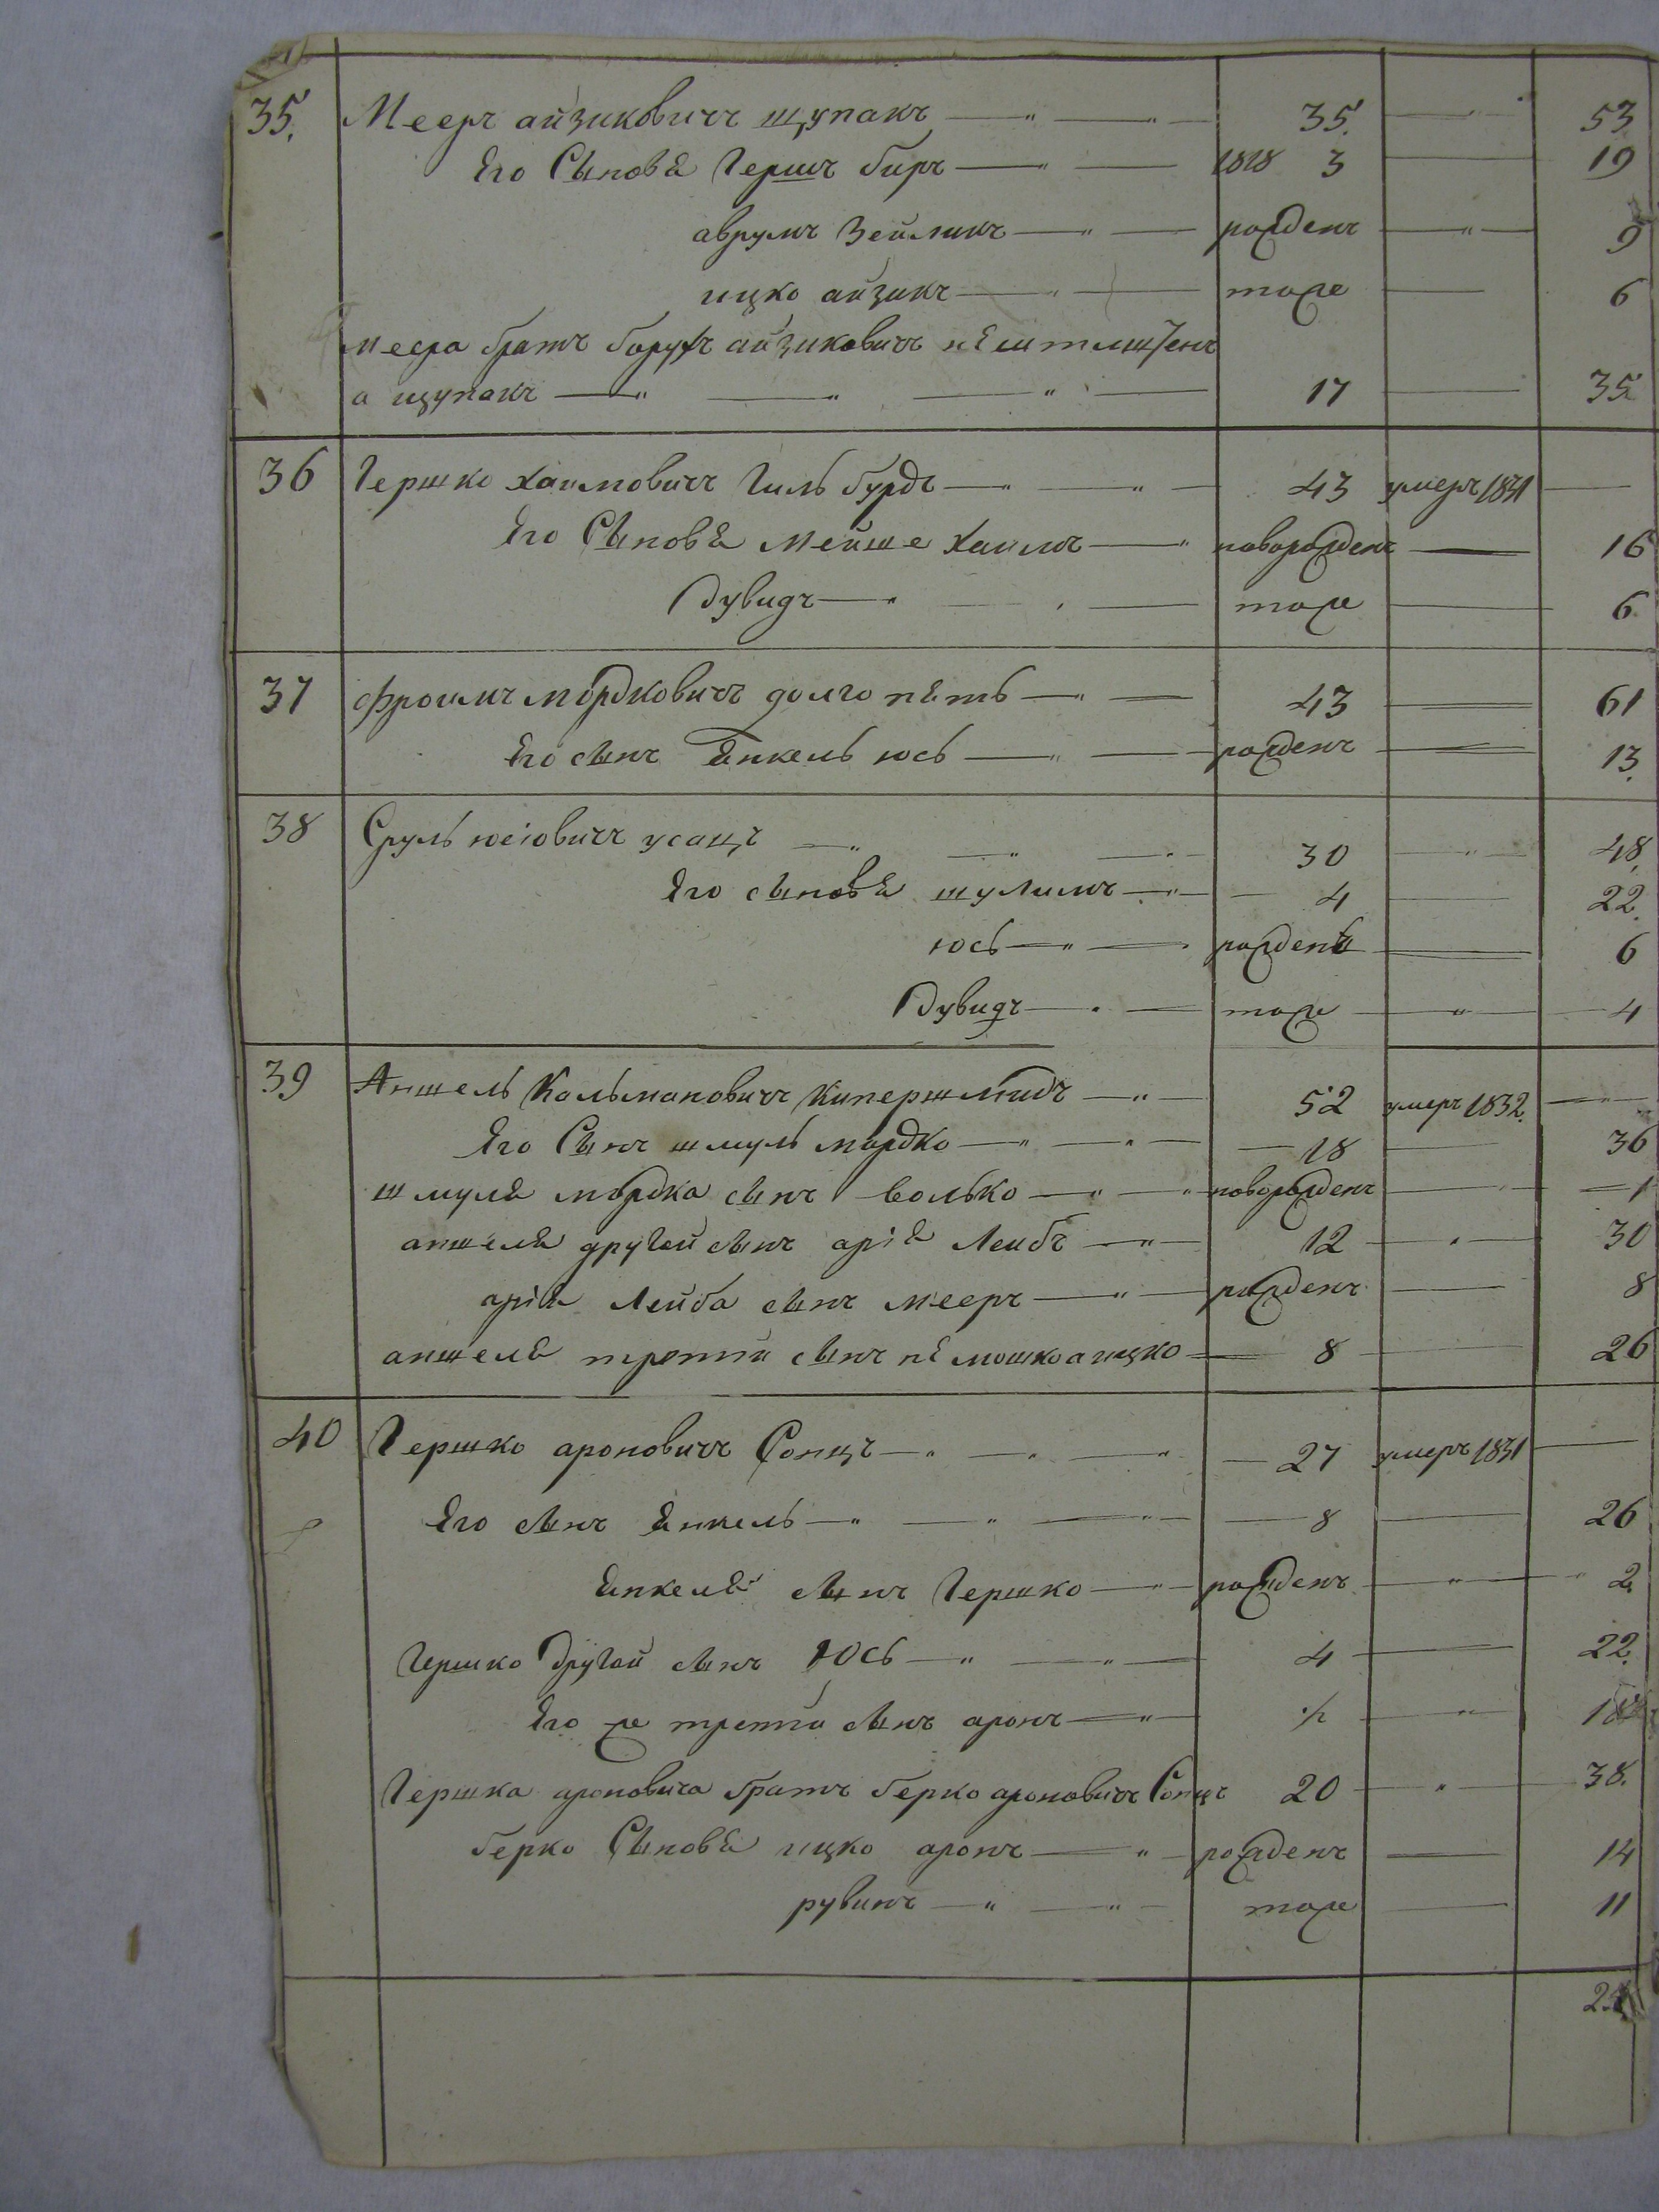 35. Мееръ айзиковичъ щупакъ — " — " — 35. — " — 53
Его Сыновѣ Гершъ биръ — " — 1818 3 — 19
аврумъ Зейликъ — " — рожденъ — " — 9
ицко айзикъ — " — тоже — 6
меера братъ борухъ айзиковичъ нѣ
а щупакъ — " — " — " — 17 — 35
36 Гершко хаимовичъ Гильбурдъ — " — " — 43 умеръ 1831 —
Его Сыновѣ мейше хаимъ — " новорожденъ — 16
Дувидъ — " — тоже — 6
37 фроимъ мордковичъ долгопѣтъ — " — 43 — 61
Его сынъ Янкель юсь — " — рожденъ — 13.
38 Сруль юсіовичъ усацъ — " — " — " — 30 — " — 48
Его сыновѣ шулимъ — " — 4 — 22.
юсь — " — рожденъ — 6
Дувидъ — " — тоже — " — 4
39 Аншель Кальмановичъ Кипершмидъ — " — 52 умеръ 1832. —
Его Сынъ шмуль мордко — " — " — 18 — 36
шмуля мордка сынъ волько — " — " новорожденъ — 1
аншеля другой сынъ арія Лейбъ — " — 12 — " — 30
арія Лейба сынъ мееръ — " — рожденъ — 8
аншеля третій сынъ нѣ мошко а ицко — 8 — 26
40 Гершко ароновичъ Сонцъ — " — " — " — 27 умеръ 1831 —
Его сынъ Янкель — " — " — " — 8 — 26
Янкеля сынъ Гершко — " — рожденъ — " — 2
Гершко другой сынъ Юсь — " — " — 4 — 22.
Его же третій сынъ аронъ — " — ½ — " —
Гершка ароновича братъ берко ароновичъ Сонцъ 20 — " — 38.
берко Сыновѣ ицко аронъ — " — рожденъ — 14
рувинъ — " — " — тоже — 11